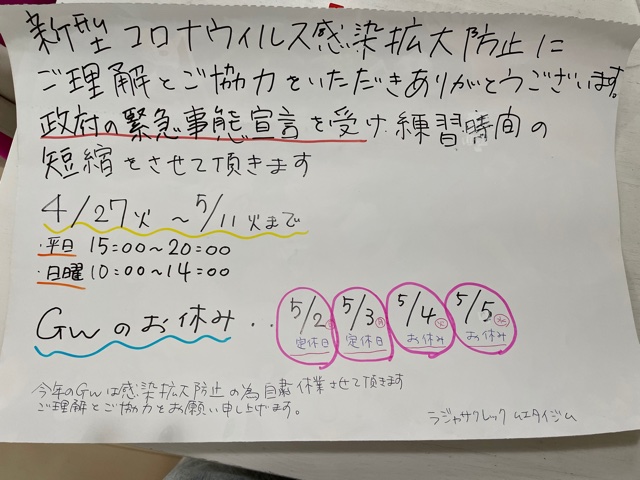 新型コロナウィルス感染拡大防止に
ご理解とご協力をいただきありがとうございます。
政府の緊急事態宣言を受け練習時間の
短縮をさせて頂きます
4/27火〜5/11火まで
・平日 15:00〜20:00
・日曜 10:00〜14:00
GWのお休み‥ 5/2 5/3月 5/4火 5/5水
定休日 定休日 お休み お休み
今年のGWは感染拡大防止の為自粛休業させて頂きます
ご理解とご協力をお願い申し上げます。
ラジャサクレック ムエタイジム